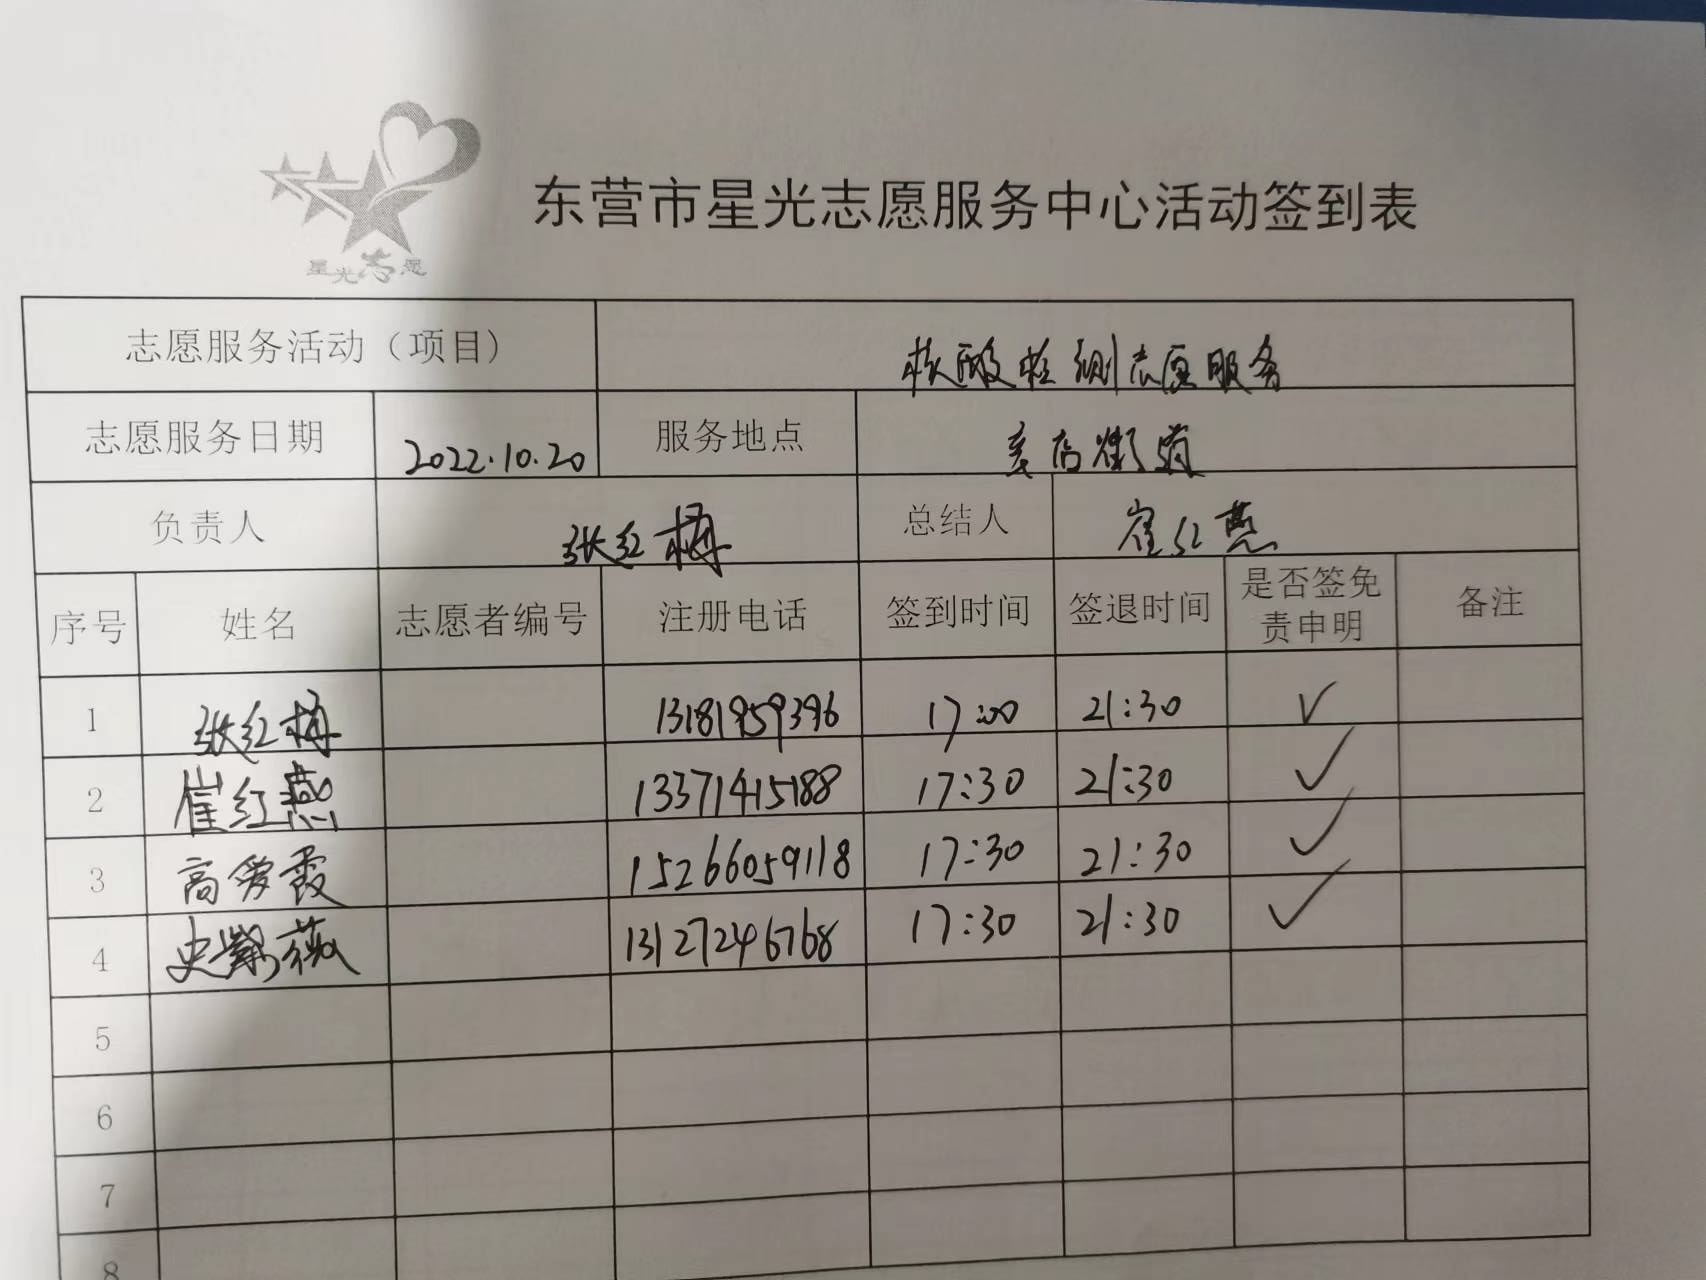 星光志愿
东营市星光志愿服务中心活动签到表
志愿服务活动（项目） 核酸检测志愿服务
志愿服务日期 2022.10.20 服务地点 辛店街道
负责人 张红梅 总结人 崔红燕
序号 姓名 志愿者编号 注册电话 签到时间 签退时间 是否签免责申明 备注
1 张红梅 13181959396 17:00 21:30 ✓
2 崔红燕 13371415188 17:30 21:30 ✓
3 高爱霞 15266059118 17:30 21:30 ✓
4 史 薇 13127246768 17:30 21:30 ✓
5
6
7
8